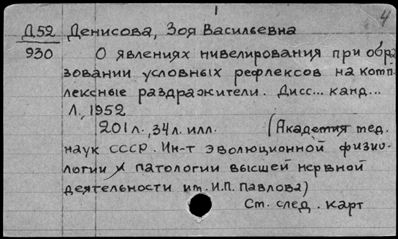 1
4
Д52 Денисова, Зоя Васильевна
930 О явлениях нивелирования при обра-
зовании условных рефлексов на комп-
лексные раздражители. Дисс... канд...
Л., 1952
201л., 34л. илл. (Академия мед.
наук СССР. Ин-т эволюционной физио-
логии и патологии высшей нервной
деятельности им. И.П. Павлова)
См. след. карт